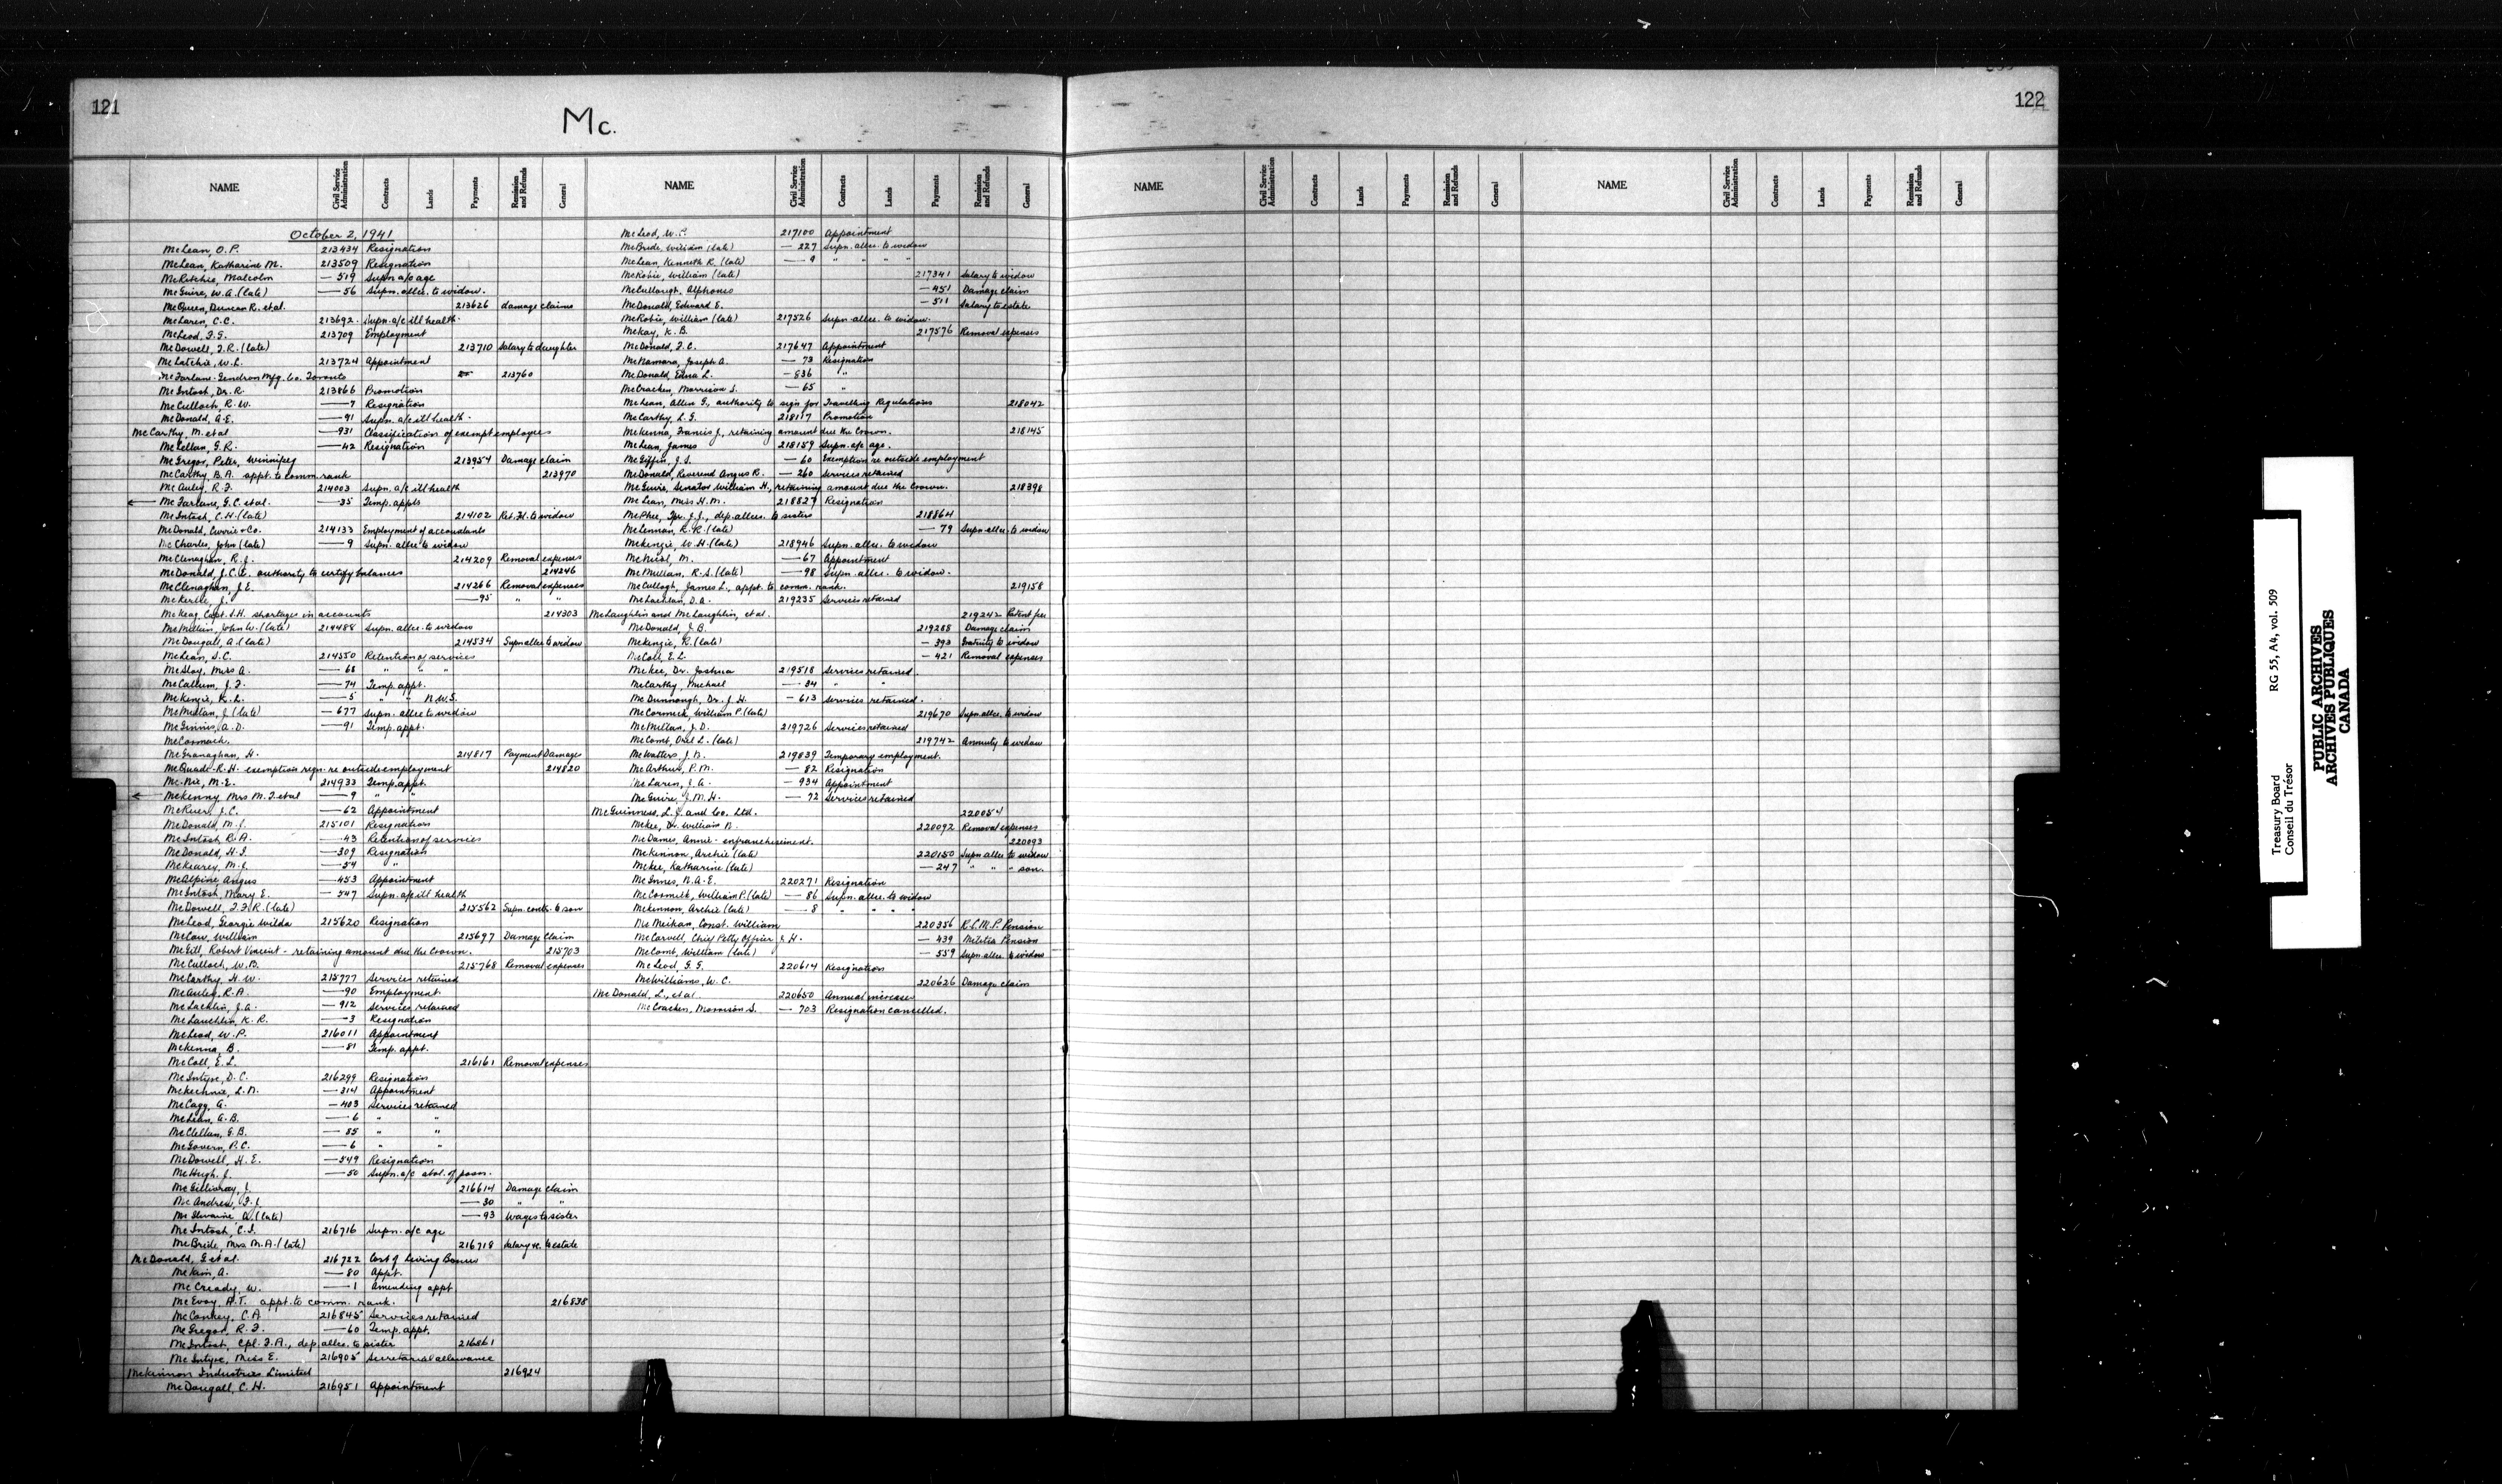 121
Mc.
NAME Civil Service Administration Contracts Lands Payments Remission and Refunds General
October 2, 1941
McLean, O.P. 213434 Resignation
McLean, Katharine M. 213509 Resignation
McRitchie, Malcolm — 519 Supn a/c age
McGuire, W.A. (late) — 56 Supn. allce. to widow.
McQueen, Duncan R. et al. 213626 damage claims
McLaren, C.C. 213692 Supn. a/c ill health.
McLeod, F.G. 213709 Employment
McDowell, F.R. (late) 213710 Salary to daughter
McLatchie, W.L. 213724 Appointment
McFarlane-Gendron Mfg. Co. Toronto 213760
McIntosh, Dr. R. 213866 Promotion
McCulloch, R.W. — 7 Resignation
McDonald, A.E. — 91 Supn. a/c ill health.
McCarthy, M. et al — 931 Classification of exempt employees
McLellan, G.R. — 42 Resignation
McGregor, Peter, Winnipeg 213954 Damage claim
McCarthy, B.A. appt. to comm. rank 213970
McAuley, R.F. 214003 Supn. a/c ill health
McFarlane, G.C. et al. — 35 Temp. appts
McIntosh, C.H. (late) 214102 Ret. Fd. to widow
McDonald, Currie & Co. 214133 Employment of accountants
McCharles, John (late) — 9 Supn. allce to widow
McClenaghan, R.J. 214209 Removal expenses
McDonald, J.C.E. authority to certify balances 214246
McClenaghan, J.E. 214266 Removal expenses
McKercher, J. — 95 " "
McKeag, Capt. S.H. shortages in accounts 214303
McMillin, John W. (late) 214488 Supn. allce. to widow
McDougall, A. (late) 214534 Supn allce to widow
McLean, S.C. 214550 Retention of services
McSloy, Miss A. — 68 " " "
McCallum, J.F. — 74 Temp. appt.
McKenzie, K.L. — 5 " N.W.S.
McMillan, J. (late) — 677 Supn. allce to widow
McGinnis, A.D. — 91 Temp. appt.
McCormack.
McGranaghan, H. 214817 Payment Damages
McQuade R.H. exemption regn. re outside employment 214820
McNie, M.E. 214933 Temp. appt.
McKenny, Mrs M.F. et al — 9 " "
J.C. — 62 Appointment
McDonald, M.J. 215101 Resignation
McIntosh R.A. — 43 Retention of services
McDonald, H.F. — 309 Resignation
M.J. — 54 "
McAlpine Angus — 453 Appointment
McIntosh, Mary E. — 547 Supn. a/c ill health
McDowell, F.F.R. (late) 215562 Supn. contr. to son
McLeod, Georgie Wilda 215620 Resignation
McCaw, William 215697 Damage Claim
McGill, Robert Vincent - retaining amount due the Crown. 215703
McCulloch, W.B. 215768 Removal expenses
McCarthy, H.W. 215777 Services retained
McAuley, R.A. — 90 Employment.
McLachlin, J.A. — 912 Services retained
McLauchlin, K.R. — 3 Resignation
McLeod, W.P. 216011 Appointment
McKenna, B. — 81 Temp. appt.
McColl, E.L. 216161 Removal expenses
McIntyre, D.C. 216299 Resignation
McKechnie, L.N. — 314 Appointment
McCagg, A. — 403 Services retained
McLean, A.B. — 6 " "
McClellan, G.B. — 85 " "
McGovern, P.C. — 6 " "
McDowell, H.E. — 549 Resignation
McHugh, J. — 50 Supn. a/c abol. of posn.
McGillivray, J. 216614 Damage claim
McAndrew, F.J. — 30 " "
McIlwaine A. (late) — 93 Wages to sister
McIntosh, C.F. 216716 Supn. a/c age
McBride, Mrs. M.A. (late) 216718 Salary &c. to estate
McDonald, G et al. 216722 Cost of Living Bonus
McKim, A. — 80 Appt.
McCready, W. — 1 Amending appt
McEvoy, A.T. appt. to comm. rank. 216838
McConkey, C.A. 216845 Services retained
McGregor, R.F. — 60 Temp. appt.
McIntosh, Cpl. F.A., dep. allce. to sister 216861
McIntyre, Miss E. 216905 Secretarial allowance
McKinnon Industries Limited 216924
McDougall, C.H. 216951 Appointment
NAME Civil Service Administration Contracts Lands Payments Remission and Refunds General
McLeod, W. 217100 Appointment
McBride, William (late) — 227 Supn. allce. to widow
McLean, Kenneth R. (late) — 9 " " " "
McRobie, William (late) 217341 Salary to widow
McCullough, Alphonse — 451 Damage claim
McDonald, Edward E. — 511 Salary to estate
McRobie, William (late) 217526 Supn. allce. to widow.
McKay, K.B. 217576 Removal expenses
McDonald, F.C. 217647 Appointment
McNamara, Joseph A. — 73 Resignation
McDonald, Edna L. — 836 "
McCracken, Morrison S. — 65 "
McLean, Allen G., authority to sign for Travelling Regulations 218042
McCarthy, L.G. 218117 Promotion
McKenna, Francis J., retaining amount due the Crown. 218145
McLean, James 218159 Supn. a/c age.
McGiffin, J.S. — 60 Exemption re outside employment
McDonald, Reverend Angus R. — 260 Services retained
McGuire, Senator William H., retaining amount due the Crown. 218398
McLean, Miss H.M. 218827 Resignation
McPhee, Spr. J.J., dep. allces. to sisters 218864
McLennan, R.R. (late) — 79 Supn. allce. to widow
McKenzie, W.H. (late) 218946 Supn. allce. to widow
McNeil, M. — 67 Appointment
McMillan, R.S. (late) — 98 Supn. allce. to widow.
McCullogh, James L., appt. to comm. rank. 219158
McLachlan, D.A. 219235 Services retained
McLaughlin and McLaughlin, et al. 219242 Patent fee
McDonald, J.B. 219288 Damage claim
McKenzie, R. (late) — 393 Gratuity to widow
McColl, E.L. — 421 Removal expenses
McKee, Dr. Joshua 219518 Services retained.
McCarthy, Michael — 84 " "
McDunnough, Dr. J.H. — 613 Services retained.
McCormick, William P. (late) 219670 Supn. allce. to widow
McMillan, J.D. 219726 Services retained
McComb, Oral L. (late) 219742 Annuity to widow
McWatters, J.N. 219839 Temporary employment.
McArthur, P.M. — 82 Resignation
McLaren, J.A. — 934 Appointment
McGuire, J.M.H. — 72 Services retained
McGuinness, L.J. and Co. Ltd. 220054
McKee, Dr. William N. 220092 Removal expenses
McDames, Annie - enfranchisement. 220093
McKinnon, Archie (late) 220150 Supn allce to widow
McKee, Katharine (late) — 247 " " " son.
McInnes, N.A.E. 220271 Resignation
McCormick, William P. (late) — 86 Supn. allce. to widow
McKinnon, Archie (late) — 8 " " " "
McMeikan, Const. William 220356 R.C.M.P. Pension
McCarvell, Chief Petty Officer J.H. — 439 Militia Pension
McComb, William (late) — 559 Supn. allce. to widow
McLeod, G.G. 220614 Resignation
McWilliams, W.C. 220626 Damage claim
McDonald, L., et al 220650 Annual increases
McCracken, Morrison S. — 703 Resignation cancelled.
122
NAME Civil Service Administration Contracts Lands Payments Remission and Refunds General
NAME Civil Service Administration Contracts Lands Payments Remission and Refunds General
Treasury Board RG 55, A4, vol. 509
Conseil du Trésor
PUBLIC ARCHIVES
ARCHIVES PUBLIQUES
CANADA